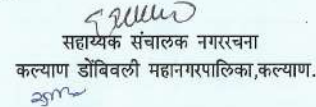 सहाय्यक संचालक नगररचना
कल्याण डोंबिवली महानगरपालिका,कल्याण.